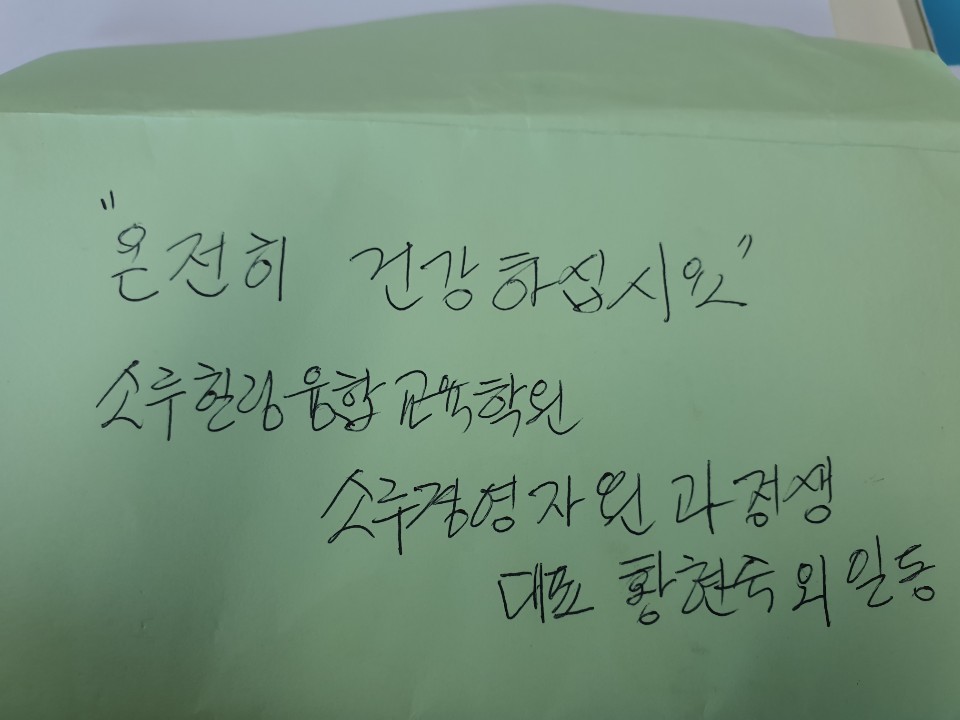 "온전히 건강하십시요"
소루힐링융합교육학원
소루경영자원과정생
대표 황현숙 외 일동